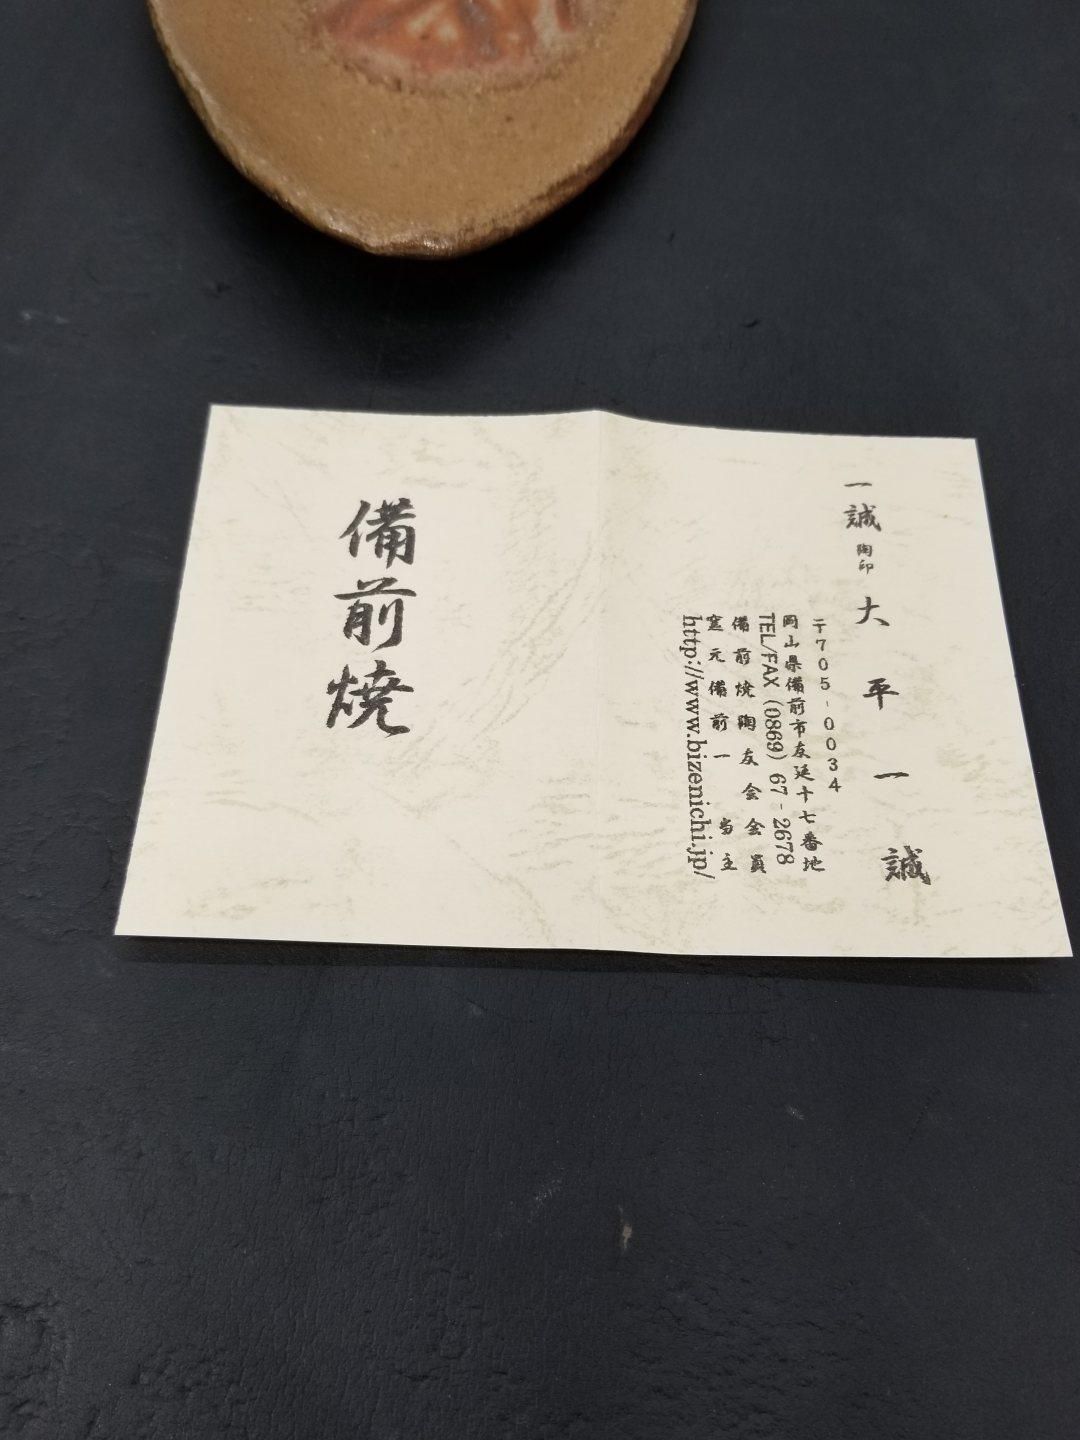 一誠 陶印 大平一誠
〒705-0034
岡山県備前市友延十七番地
TEL/FAX (0869) 67-2678
備前焼陶友会会員
窯元備前一 当主
http://www.bizenichi.jp/
備前焼